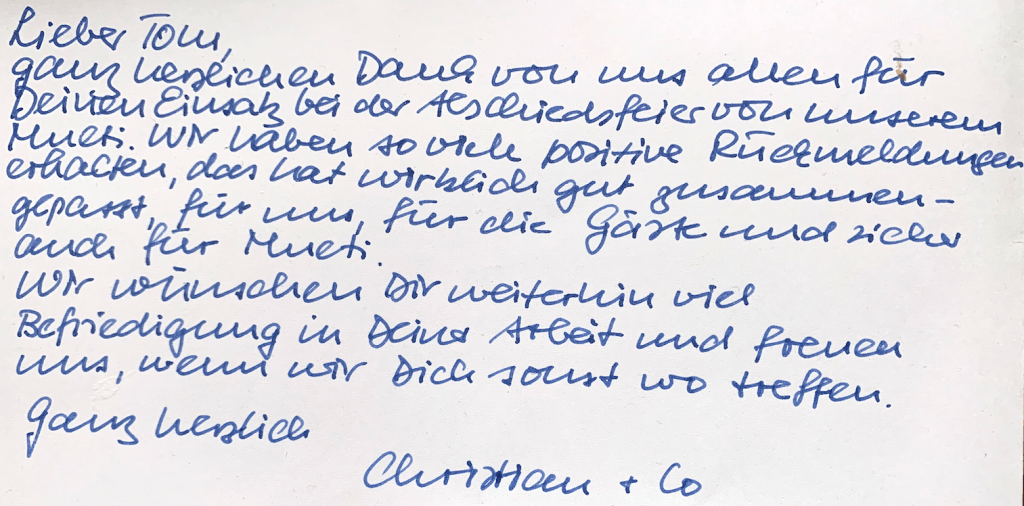 Lieber Tom,
ganz herzlichen Dank von uns allen für
Deinen Einsatz bei der Abschiedsfeier von unserem
Mueti. Wir haben so viele positive Rückmeldungen
erhalten, das hat wirklich gut zusammen-
gepasst, für uns, für die Gäste und sicher
auch für Mueti.
Wir wünschen Dir weiterhin viel
Befriedigung in Deiner Arbeit und freuen
uns, wenn wir Dich sonst wo treffen.
Ganz herzlich
Christian + Co